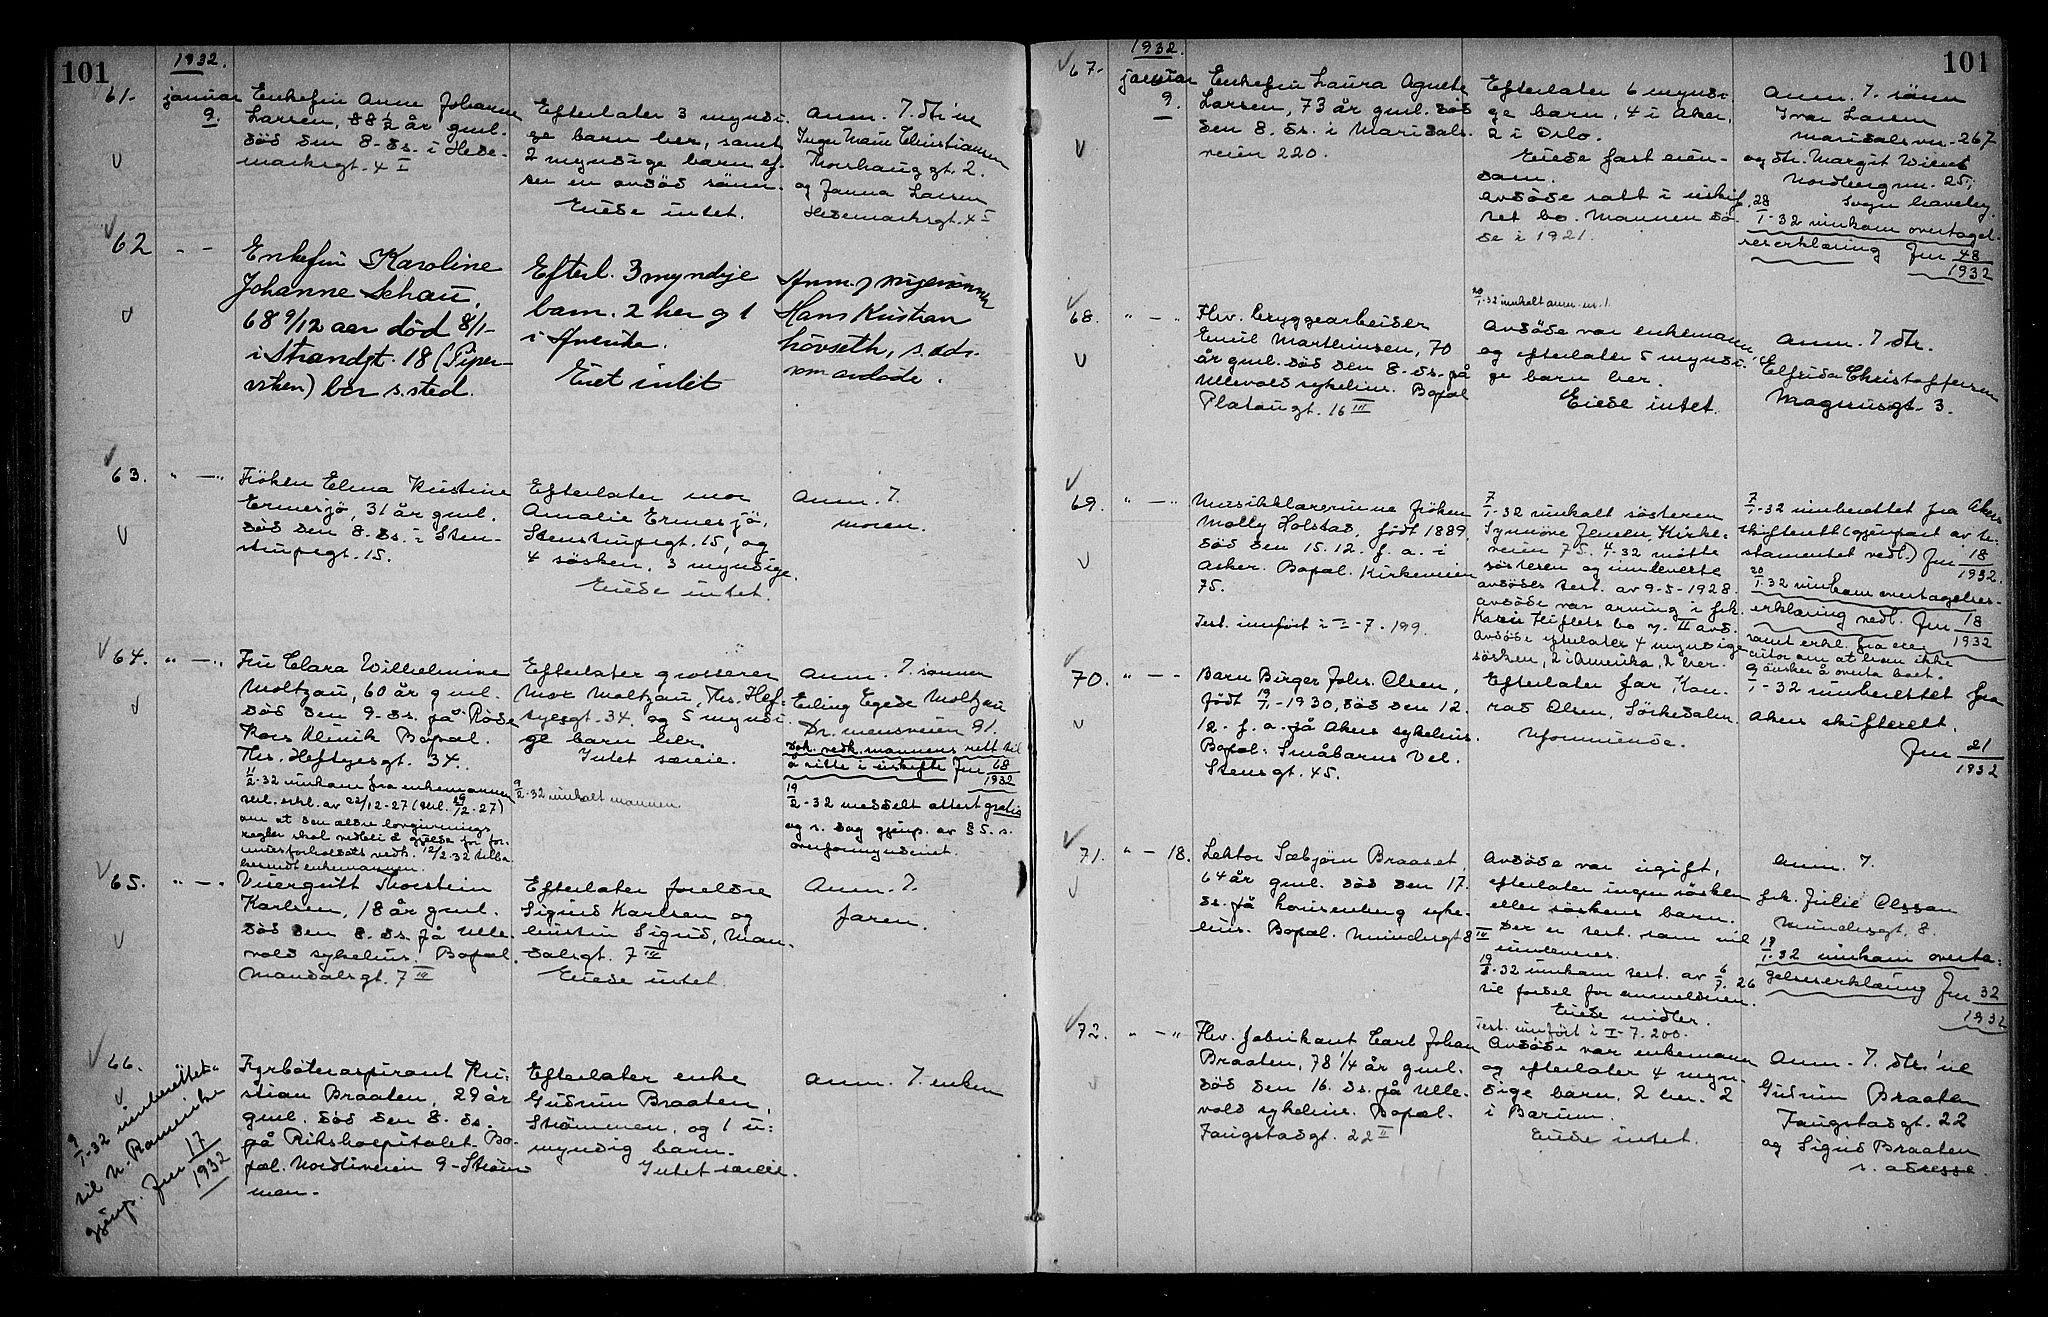 101
1932.
61.
januar
9.
Enkefru Anne Johanne
Larsen, 88 1/2 år gml.
död den 8. ds. i Hede-
marksgt. 4 I
Efterlater 3 myndi-
ge barn her, samt
2 myndige barn ef-
ter en avdöd sönn.
Eiede intet.
Anm. 7. dtr.ne
Inger Marie Christiansen
Thorhauggt. 2.
og Janna Larsen
Hedemarksgt. 4 I
62 - -
Enkefru Karoline
Johanne Schau,
68 9/12 aar död 8/1-
i Strandgt. 18 (Piper-
viken) bor s. sted.
Efterl. 3 myndige
barn. 2 her og 1
i Amerika.
Eiet intet
Anm.
Hans Kristian
Hovseth, s. adr.
som avdöde.
63. " — "
Fröken Elena Kristine
Ermesjö, 31 år gml.
död den 8. ds. i Sten-
strupsgt. 15.
Efterlater mor
Amalie Ermesjö,
Stenstrupsgt. 15, og
4 sösken, 3 myndige.
Eiede intet.
Anm. 7.
moren.
64. " — "
Fru Clara Wilhelmine
Moltzau, 60 år gml.
död den 9. ds. på Röde
Kors Klinik. Bopæl.
Ths. Heftyesgt. 34.
11/2-32 innkom fra enkemannen
erkl. av 22/12-27
om at den ældre lovgivnings
regler skal vedbli å gjelde for for-
muesforholdet 12/2.32 tilba-
kesendt enkemannen.
Efterlater grosserer
Max Moltzau, Ths. Hef-
tyesgt. 34, og 5 myndi-
ge barn her.
Intet særeie.
9/2-32 innkalt mannen.
Anm. 7. sönnen
Erling Egede Moltzau
Drammensveien 91.
Dok. vedk. mannens rett til
å sitte i uskifte Jnr 68/1932
19/2-32 meddelt attest gratis
og s. dag gjenp. av § 5. s.
overformynderiet.
65. " — "
Visergutt Thorstein
Karlsen, 18 år gml.
död den 8. ds. på Ulle-
vold sykehus. Bopæl.
Mandalsgt. 7 III
Efterlater foreldre
Sigurd Karlsen og
hustru Sigrid, Man-
dalsgt. 7 III
Eiede intet.
Anm. 7.
faren.
66.
9/1-32 innberettet
til N. Romerike
gjenp. Jnr 17/1932
Fyrböteraspirant Kri-
stian Braaten, 29 år
gml. död den 8. ds.
på Rikshospitalet. Bo-
pæl. Nordliveien 9 - Ström-
men.
Efterlater enke
Gudrun Braaten,
Strömmen, og 1 u-
myndig barn.
Intet særeie.
Anm. 7. enken
101
1932.
67.
januar
9.
Enkefru Laura Agnete
Larsen, 73 år gml. död
den 8. ds. i Maridals-
veien 220.
Efterlater 6 myndi-
ge barn, 4 i Aker,
2 i Oslo.
Eiede fast eien-
dom.
Avdöde satt i uskif-
tet bo. Mannen dö-
de i 1921.
20/1-32 innkalt anm. nr. 1.
Anm. 7. sönn
Ivar Larsen
Maridalsvn. 267
og dtr. Margit
Nordbergvn. 25,
Sogn haveby.
28/1-32 innkom overtagel-
seserklæring Jnr 48/1932
68. " — "
Fhv. bryggearbeider
Emil Martinsen, 70
år gml. död den 8. ds. på
Ullevold sykehus. Bopæl
Platougt. 16 III
Avdöde var enkemann
og efterlater 5 myndi-
ge barn her.
Eiede intet.
Anm. 7 dtr.
Elfrida Christoffersen
Magnusgt. 3.
69. " — "
Musikklærerinne fröken
Molly Lolstad, född 1889,
död den 15. 12. f. a. i
Asker. Bopæl. Kirkeveien
75.
Test. innfört i I-7. 199.
7/1-32 innkalt sösteren
Synnöve Jensen, Kirke-
veien 75. 11/1-32 mötte
sösteren og innleverte
avdödes test. av 9-5-1928.
Avdöde var arving i frk.
bo v. II avd.
Avdöde efterlater 4 myndige
sösken, 2 i Amerika, 2 her.
7/1-32 innberettet fra Akers
skifterett (gjenpart av te-
stamentet vedl.) Jnr 18/1932.
20/1-32 innkom overtagelses-
erklæring vedl. Jnr 18/1932
samt erkl. fra
om at han ikke
önsker å overta boet.
70. " — "
Barn Birger Johs. Olsen,
födt 19/1-1930, död den 12.
12. f. a. på Aker sykehus.
Bopæl: Småbarns Vel.
Stensgt. 45.
Efterlater far, Kon-
rad Olsen, Sörkedalen.
Uformuende.
9/1-32 innberettet fra
Aker skifterett.
Jnr 21/1932
71. " — 18.
Lektor Sæbjörn Braaset,
64 år gml. död den 17.
ds. på Lovisenberg syke-
hus. Bopæl. Munchsgt 8 IV
Avdöde var ugift,
efterlater ingen sösken
eller söskens barn.
Der er test. som vil
innleveres.
19/1-32 innkom test. av 6/7. 26
til fordel for anmelderen.
Eiede midler.
Test. innfört i I-7. 200.
Anm. 7.
frk. Julie Olsson
Munchsgt. 8.
19/1-32 innkom overta-
gelseserklæring Jnr 32/1932
72. " — "
Fhv. fabrikant Carl Johan
Braaten, 78 1/4 år gml.
död den 16. ds. på Ulle-
vold sykehus. Bopæl.
Fougstadsgt. 22 II
Avdöde var enkemann
og efterlater 4 myn-
dige barn, 2 her. 2
i Bærum.
Eiede intet.
Anm. 7. dtr.'ne
Gudrun Braaten
Fougstadsgt. 22
og Sigrid Braaten
s. adresse.